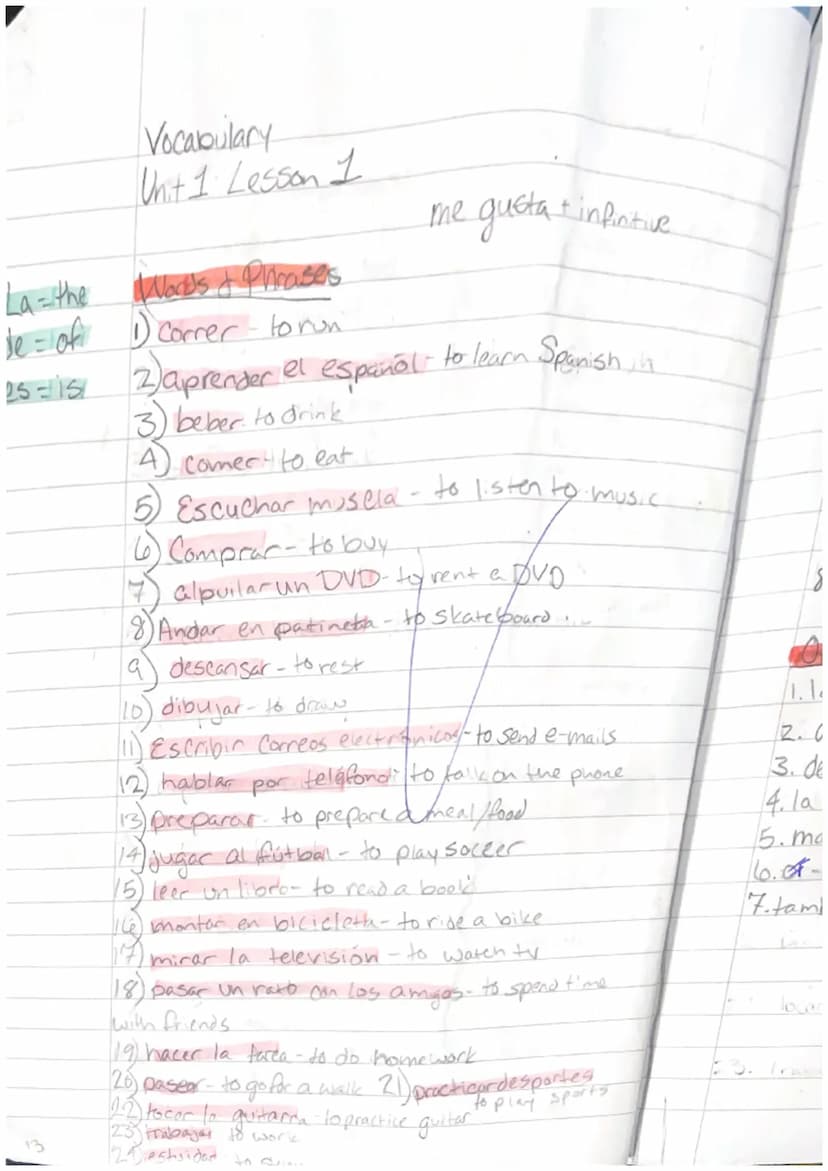 Vocabulary
Unit 1 Lesson 1
me gusta + infinitive
La = the
de = of
es = is
Words + Phrases
1) Correr - to run
2) aprender el español - to learn Spanish
3) beber - to drink
4) comer - to eat
5) Escuchar muscia - to listen to music
6) Comprar - to buy
7) alpuilar un DVD - to rent a DVD
8) Andar en patineta - to skateboard
9) descansar - to rest
10) dibujar - to draw
11) Escribir Correos electrónicos - to send e-mails
12) hablar por teléfono - to talk on the phone
13) preparar - to prepare a meal/food
14) jugar al fútbol - to play soccer
15) leer un libro - to read a book
16) montar en bicicleta - to ride a bike
17) mirar la televisión - to watch tv
18) pasar un rato con los amigos - to spend time
with friends
19) hacer la tarea - to do homework
20) pasear - to go for a walk 21) practicar desportes
to play sports
22) tocar la guitarra - to practice guitar
23) trabajar to work
24)
13
1. l
2.
3. de
4. la
5. mo
6.
7. tam